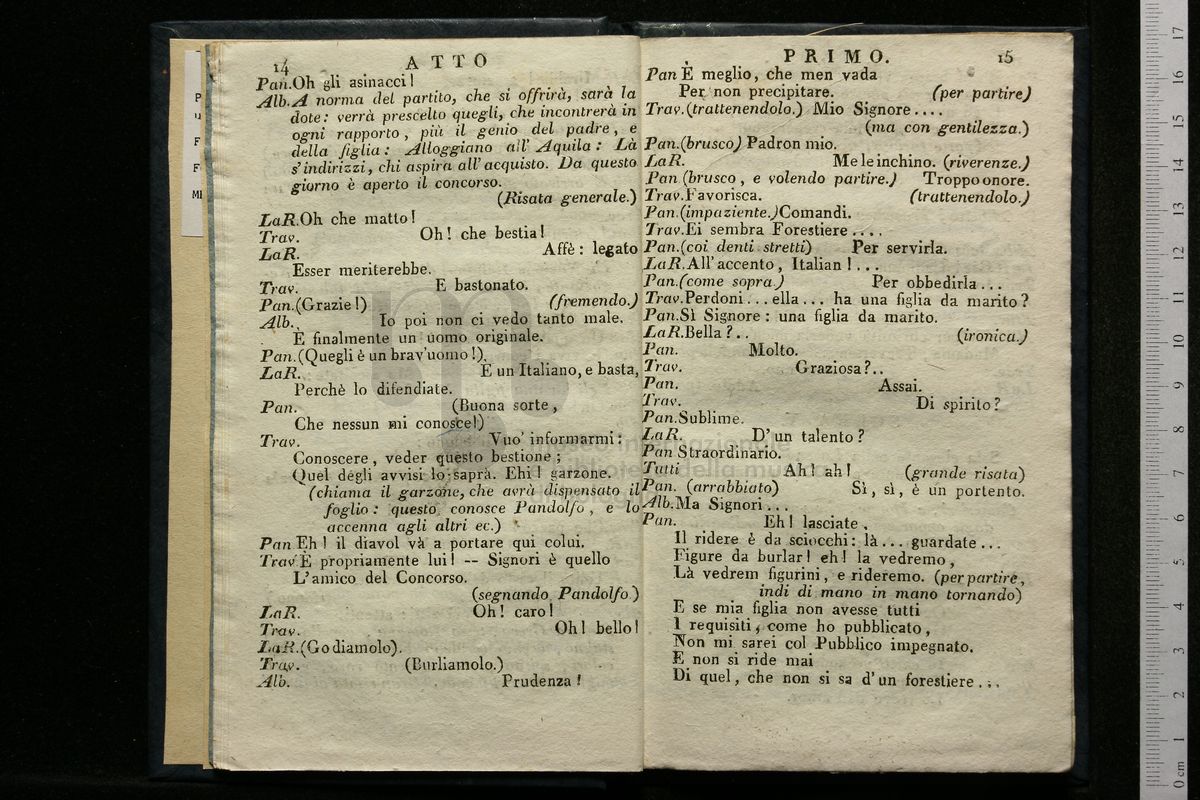 14 ATTO
Pan. Oh gli asinacci!
Alb. A norma del partito, che si offrirà, sarà la
dote: verrà prescelto quegli, che incontrerà in
ogni rapporto, più il genio del padre, e
della figlia: Alloggiano all'Aquila: Là
s'indirizzi, chi aspira all'acquisto. Da questo
giorno è aperto il concorso.
(Risata generale.)
LaR. Oh che matto!
Trav. Oh! che bestia!
LaR. Affè: legato
Esser meriterebbe.
Trav. E bastonato.
Pan. (Grazie!) (fremendo.)
Alb. Io poi non ci vedo tanto male.
È finalmente un uomo originale.
Pan. (Quegli è un brav'uomo!).
LaR. È un Italiano, e basta,
Perchè lo difendiate.
Pan. (Buona sorte,
Che nessun mi conosce!)
Trav. Vuo' informarmi:
Conoscere, veder questo bestione;
Quel degli avvisi lo saprà. Ehi! garzone.
(chiama il garzone, che avrà dispensato il
foglio: questo conosce Pandolfo, e lo
accenna agli altri ec.)
Pan Eh! il diavol và a portare qui colui.
Trav. È propriamente lui! -- Signori è quello
L'amico del Concorso.
(segnando Pandolfo)
LaR. Oh! caro!
Trav. Oh! bello!
LaR. (Godiamolo).
Trav. (Burliamolo.)
Alb. Prudenza!
PRIMO. 15
Pan È meglio, che men vada
Per non precipitare. (per partire)
Trav. (trattenendolo.) Mio Signore....
(ma con gentilezza.)
Pan. (brusco) Padron mio.
LaR. Me le inchino. (riverenze.)
Pan (brusco, e volendo partire.) Troppo onore.
Trav. Favorisca. (trattenendolo.)
Pan. (impaziente.) Comandi.
Trav. Ei sembra Forestiere....
Pan. (coi denti stretti) Per servirla.
LaR. All'accento, Italian!...
Pan. (come sopra) Per obbedirla...
Trav. Perdoni...ella... ha una figlia da marito?
Pan. Sì Signore: una figlia da marito.
LaR. Bella?.. (ironica.)
Pan. Molto.
Trav. Graziosa?..
Pan. Assai.
Trav. Di spirito?
Pan. Sublime.
LaR. D'un talento?
Pan Straordinario.
Tutti Ah! ah! (grande risata)
Pan. (arrabbiato) Sì, sì, è un portento.
Alb. Ma Signori...
Pan. Eh! lasciate.
Il ridere è da sciocchi: là... guardate...
Figure da burlar! eh! la vedremo,
Là vedrem figurini, e rideremo. (per partire,
indi di mano in mano tornando)
E se mia figlia non avesse tutti
I requisiti, come ho pubblicato,
Non mi sarei col Pubblico impegnato.
E non si ride mai
Di quel, che non si sa d'un forestiere...